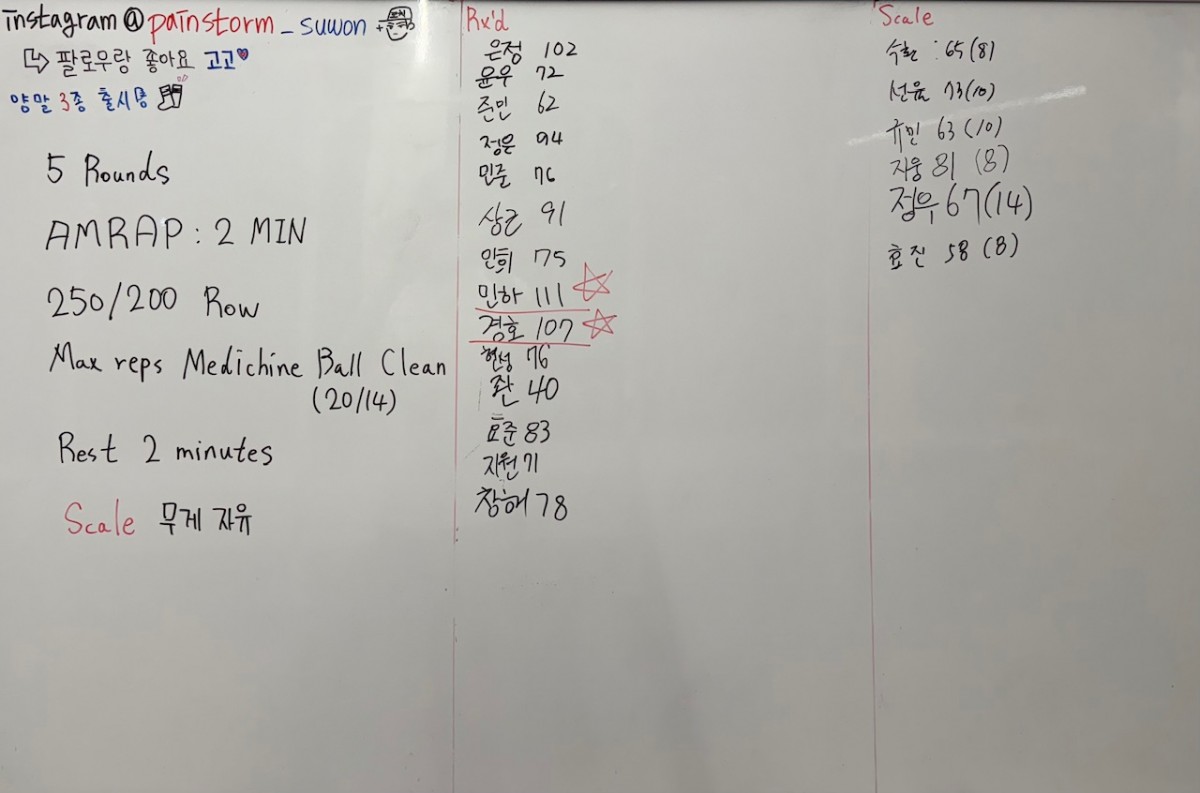 instagram@painstorm_suwon
팔로우랑 좋아요 고고
양말 3종 출시중
5 Rounds
AMRAP : 2 MIN
250/200 Row
Max reps Medichine Ball Clean
(20/14)
Rest 2 minutes
Scale 무게 자유
Rx'd
은정 102
윤우 72
준민 62
정은 94
민준 76
상근 91
인희 75
민하 111
경호 107
현성 76
40
효준 83
지원 71
창해 78
Scale
65(8)
선율 73(10)
규민 63(10)
지웅 81 (8)
정우 67(14)
효진 58 (8)